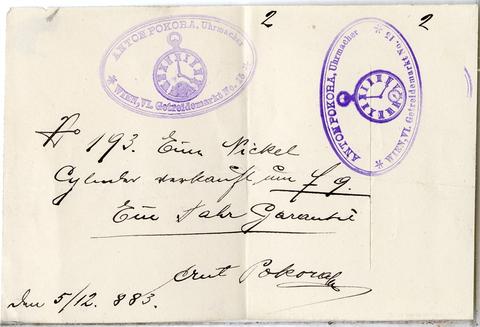 2 2
ANTON POKORA, Uhrmacher
* WIEN, VI. Getreidemarkt No. 15 *
ANTON POKORA, Uhrmacher
* WIEN, VI. Getreidemarkt No. 15 *
No 193. Eine Nickel
Cylinder verkauft um f 9.
Ein Jahr Garantie
Ant Pokora
den 5/12. 883.